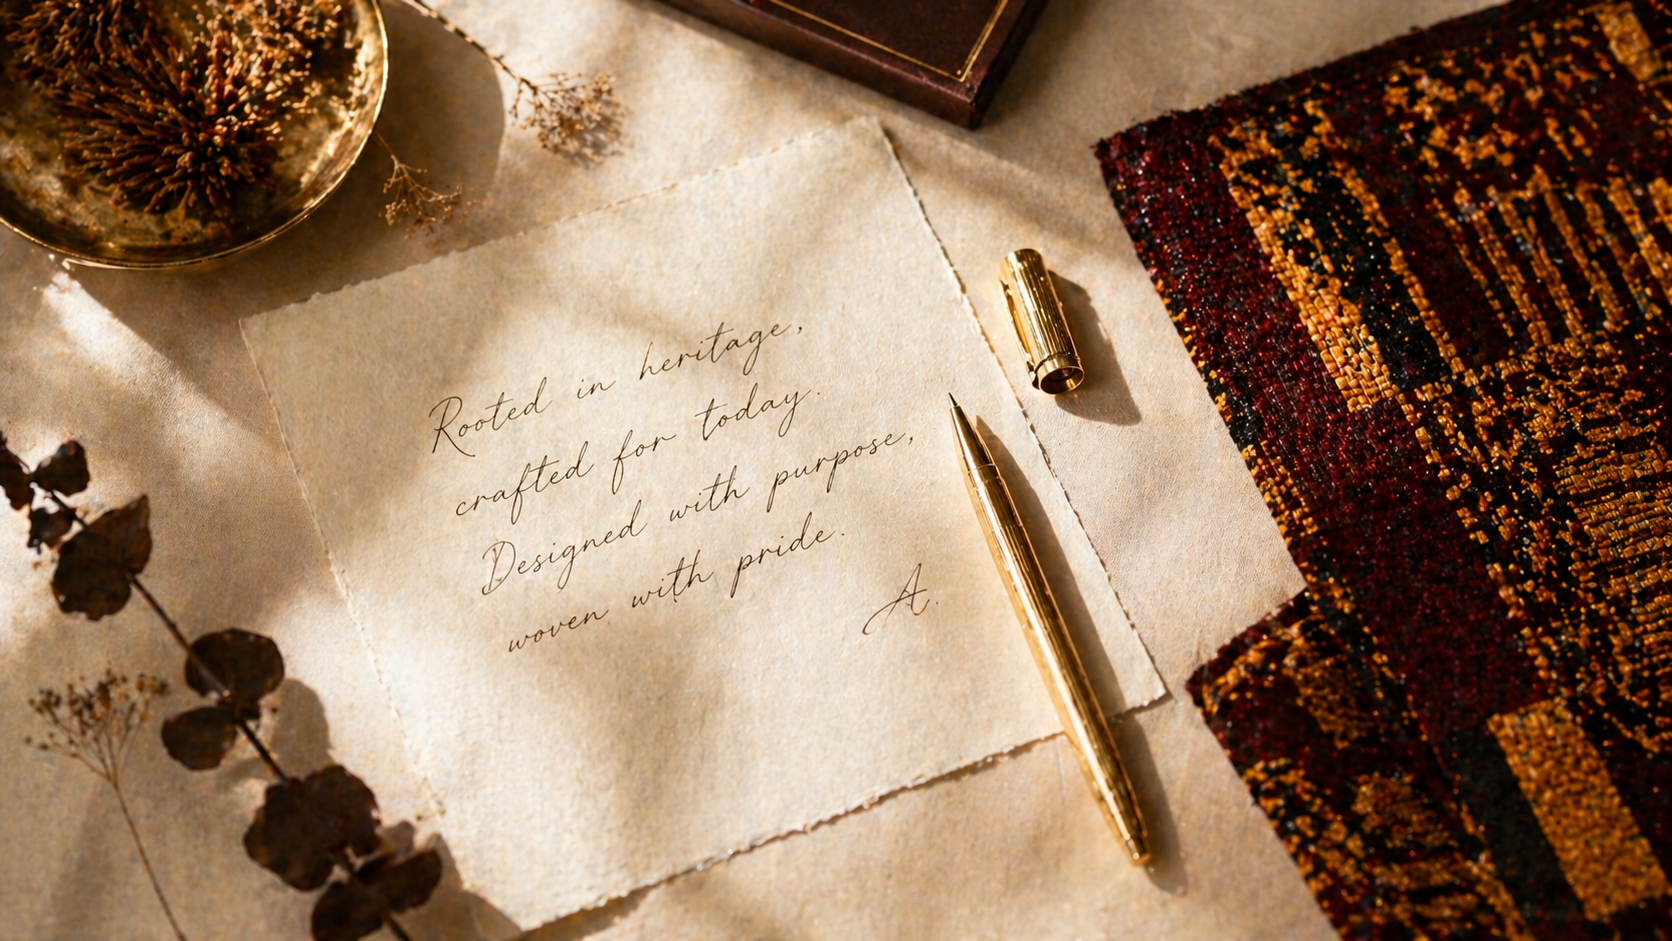 Rooted in heritage,
crafted for today.
Designed with purpose,
woven with pride.
A.